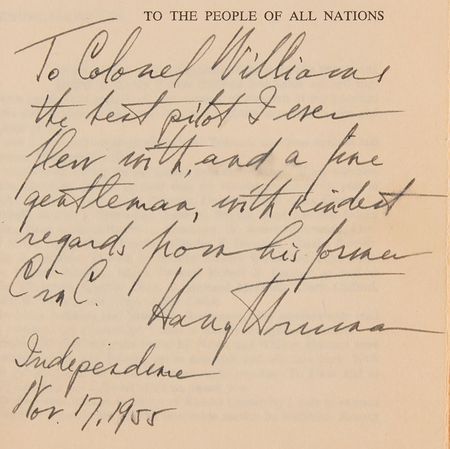 TO THE PEOPLE OF ALL NATIONS
To Colonel Williams
the best pilot I ever
flew with, and a fine
gentleman, with kindest
regards from his former
C in C.
Harry Truman
Independence
Nov. 17, 1955